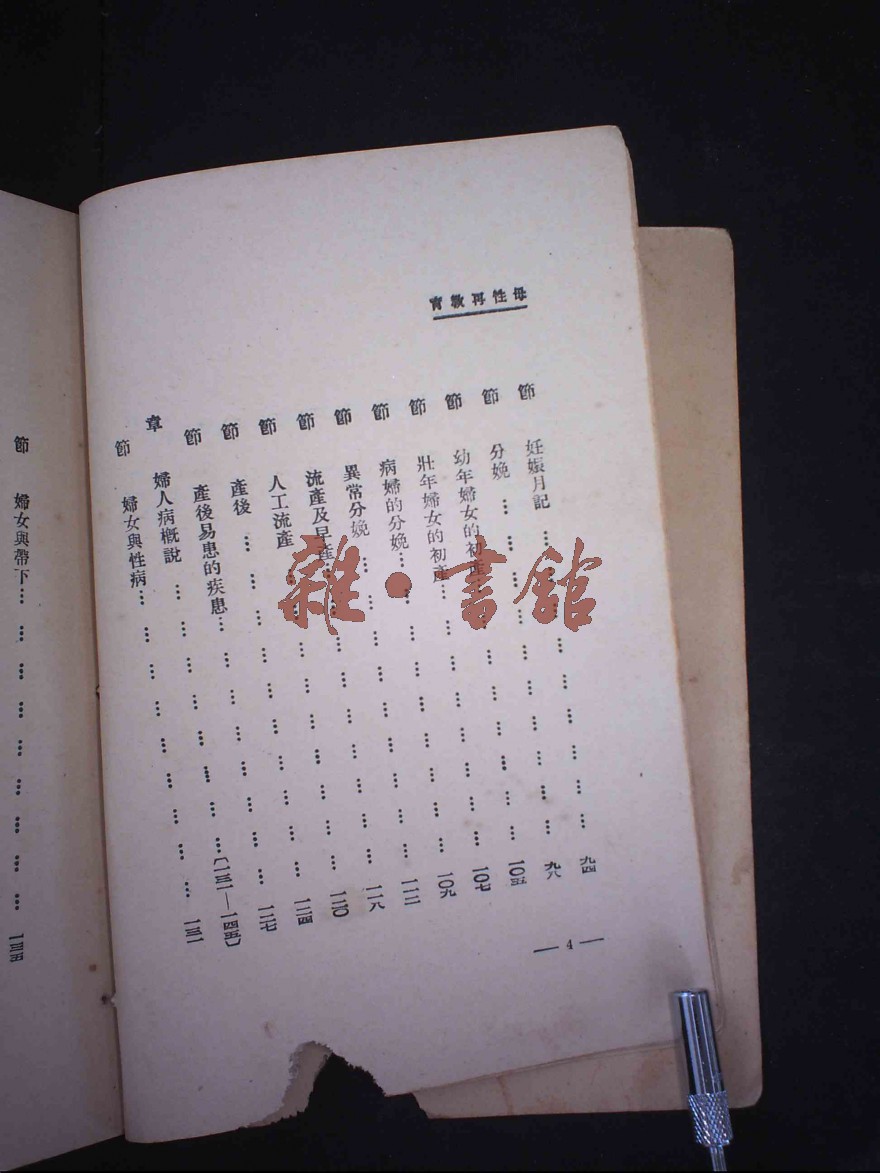 母性再教育
節 妊娠月記…………………………九四
節 分娩…………………………九八
節 幼年婦女的初產…………………………一〇五
節 壯年婦女的初產…………………………一〇七
節 病婦的分娩…………………………一〇九
節 異常分娩…………………………一一二
節 流產及早產…………………………一一八
節 人工流產…………………………一二〇
節 產後…………………………一二四
節 產後易患的疾患…………………………一二七
章 婦人病概說…………………………〔一三一—一四五〕
節 婦女與性病…………………………一三一
— 4 —
節 婦女與帶下…………………………一三五
雜·書館